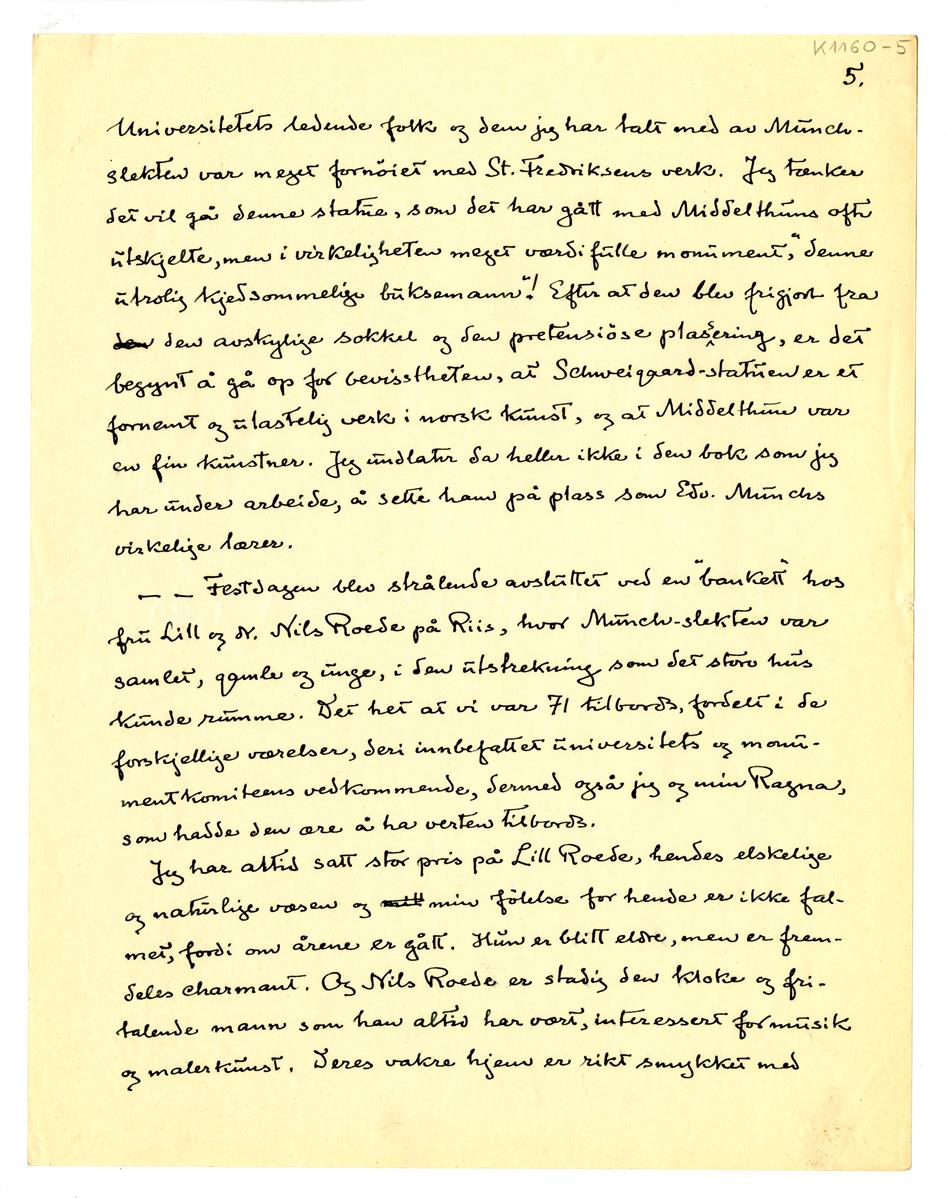 K1160-5
5.
Universitetets ledende folk og dem jeg har talt med av Munch-
slekten var meget fornöiet med St. Fredriksens verk. Jeg tænker
det vil gå denne statue, som det har gått med Middelthuns ofte
utskjelte, men i virkeligheten meget værdifulle monument, "denne
utrolig kjedsommelige buksemann"! Efter at den blev frigjort fra
den den avskylige sokkel og den pretensiöse plassering, er det
begynt å gå op for bevisstheten, at Schweigaard-statuen er et
fornemt og ulastelig verk i norsk kunst, og at Middelthun var
en fin kunstner. Jeg undlater da heller ikke i den bok som jeg
har under arbeide, å sette ham på plass som Edv. Munchs
virkelige lærer.
— — Festdagen blev strålende avsluttet ved en "bankett" hos
fru Lill og dr. Nils Roede på Riis, hvor Munch-slekten var
samlet, gamle og unge, i den utstrekning som det store hus
kunde rumme. Det het at vi var 71 tilbords, fordelt i de
forskjellige værelser, deri innbefattet universitets og monu-
mentkomiteens vedkommende, dermed også jeg og min Ragna,
som hadde den ære å ha verten tilbords.
Jeg har altid satt stor pris på Lill Roede, hendes elskelige
og naturlige væsen og min fölelse for hende er ikke fal-
met, fordi om årene er gått. Hun er blitt eldre, men er frem-
deles charmant. Og Nils Roede er stadig den kloke og fri-
talende mann som han altid har vært, interessert for musik
og malerkunst. Deres vakre hjem er rikt smykket med